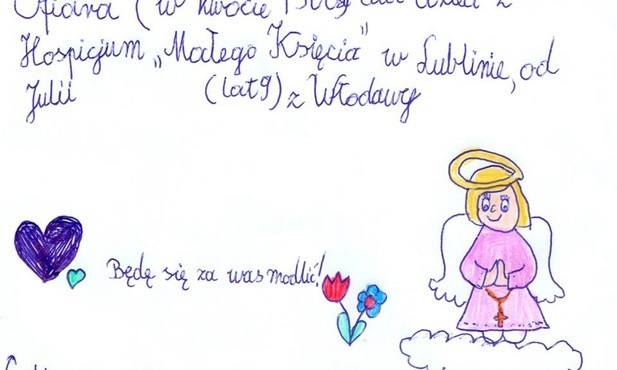 Ofiara (w kwocie dla dzieci z
Hospicjum „Małego Księcia” w Lublinie, od
Julii (lat 9) z Włodawy
Będę się za was modlić!